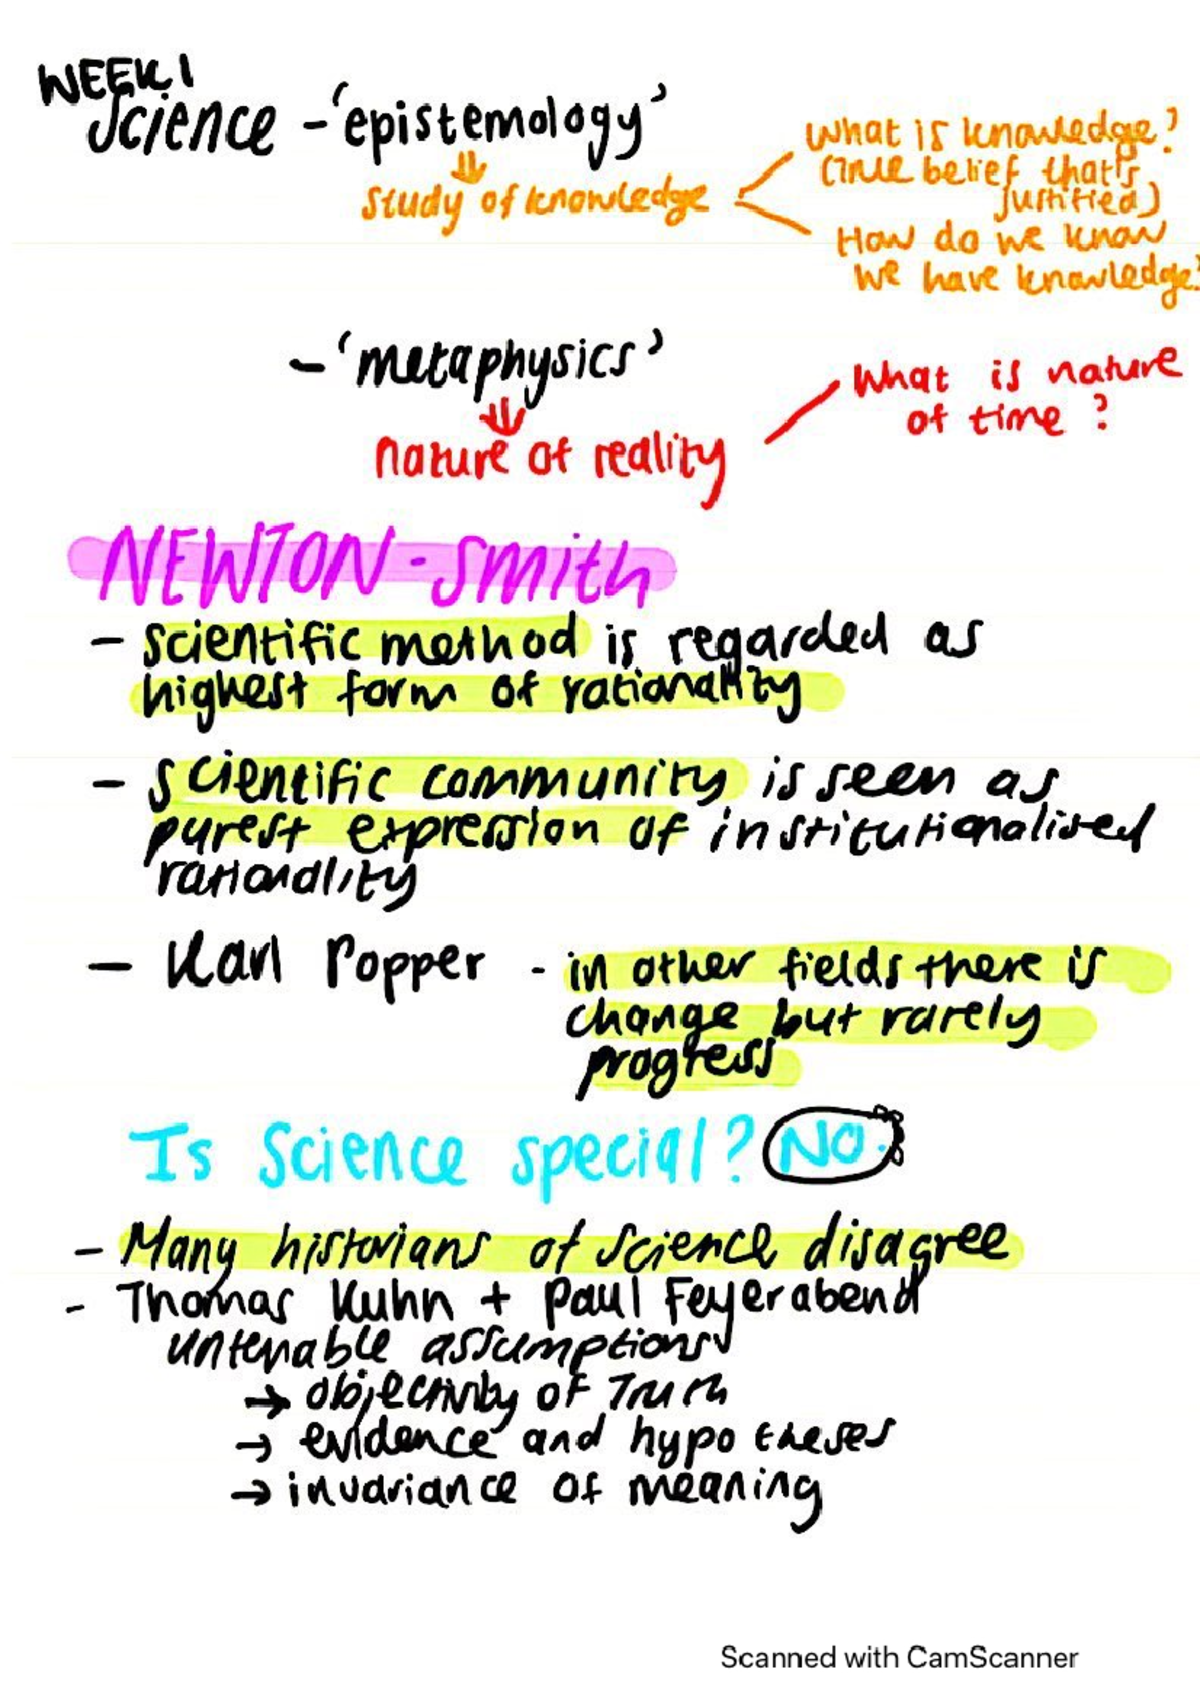 WEEK 1
Science - 'epistemology'
study of knowledge
What is knowledge?
(true belief that's
justified)
How do we know
we have knowledge?
- 'metaphysics'
nature of reality
What is nature
of time?
NEWTON-Smith
- scientific method is regarded as
highest form of rationality
- scientific community is seen as
purest expression of institutionalised
rationality
- Karl Popper - in other fields there is
change but rarely
progress
Is Science special? NO.
- Many historians of science disagree
- Thomas Kuhn + Paul Feyerabend
untenable assumptions
→ objectivity of Truth
→ evidence and hypotheses
→ invariance of meaning
Scanned with CamScanner